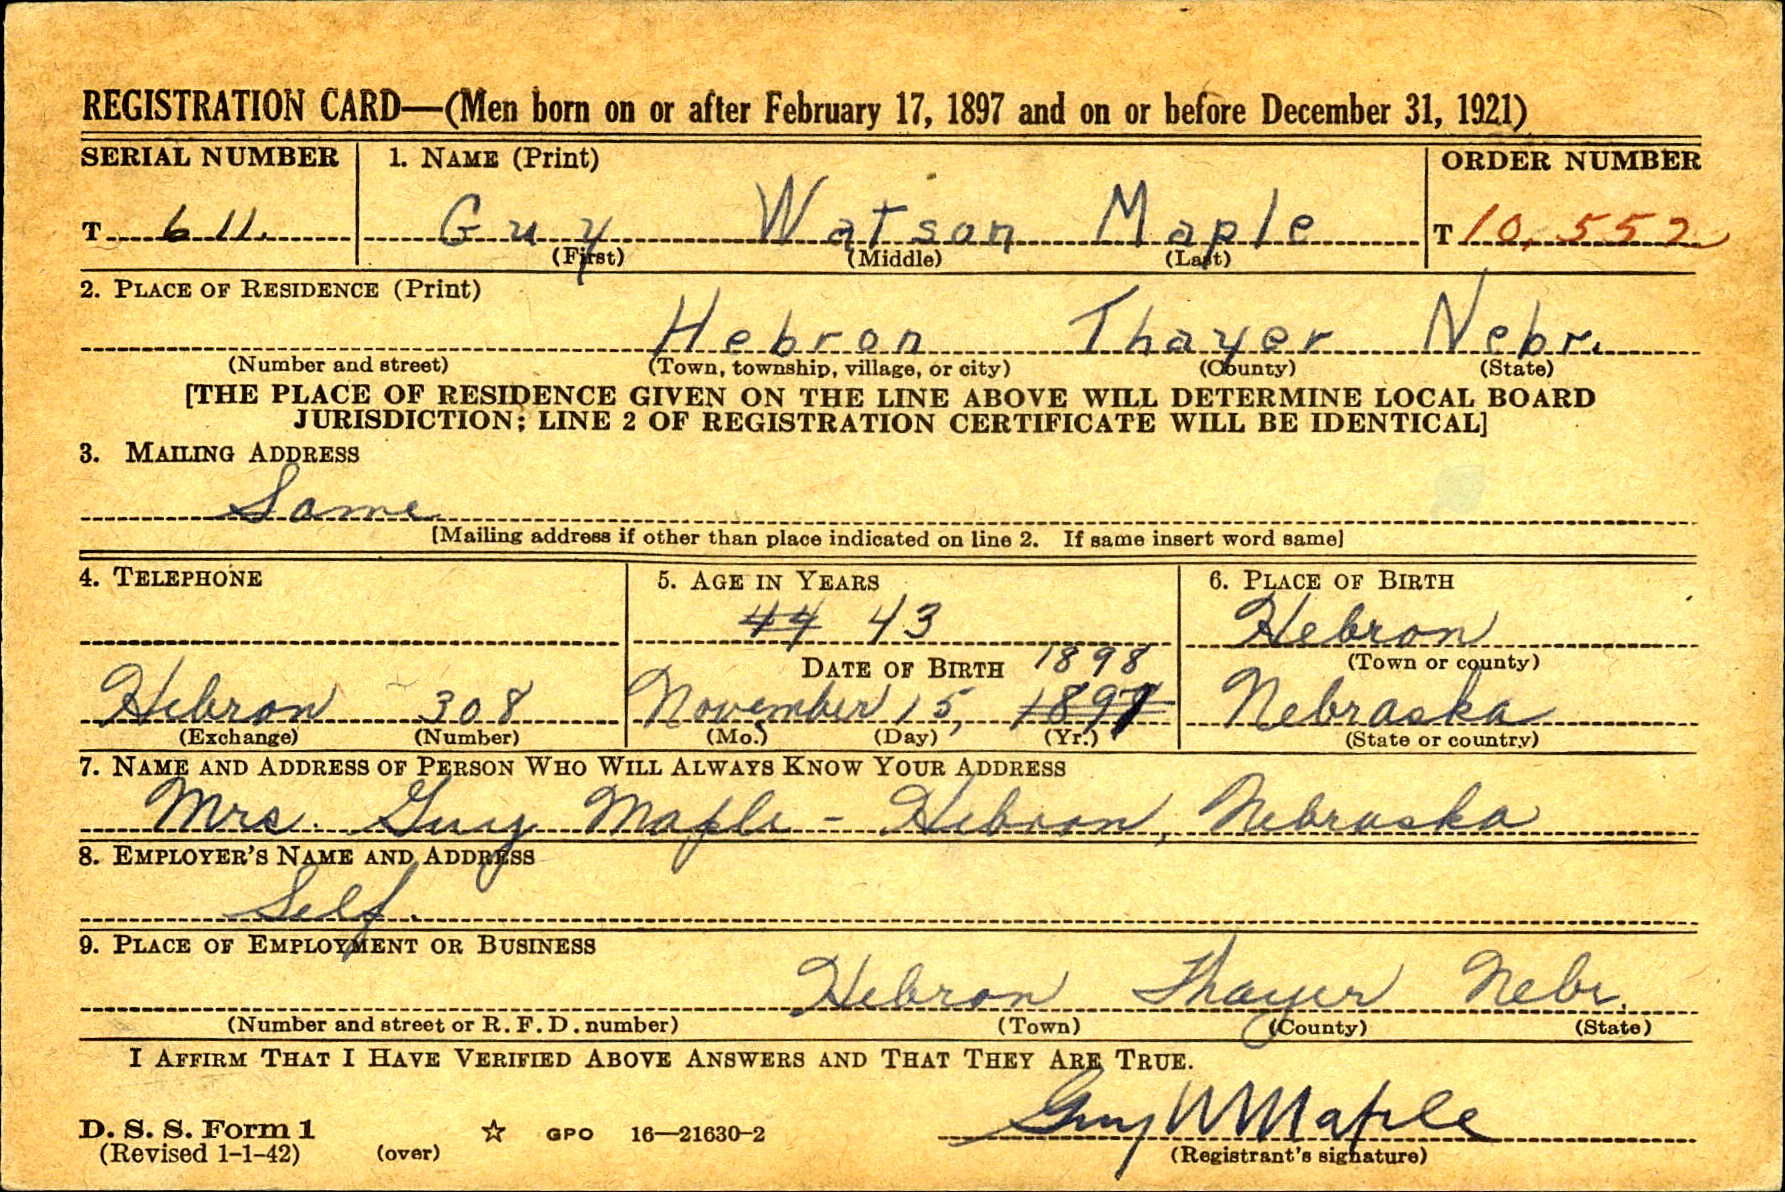 REGISTRATION CARD—(Men born on or after February 17, 1897 and on or before December 31, 1921)
SERIAL NUMBER 1. NAME (Print) ORDER NUMBER
T 611. Guy Watson Maple T 10,552
(First) (Middle) (Last)
2. PLACE OF RESIDENCE (Print)
Hebron Thayer Nebr.
(Number and street) (Town, township, village, or city) (County) (State)
[THE PLACE OF RESIDENCE GIVEN ON THE LINE ABOVE WILL DETERMINE LOCAL BOARD
JURISDICTION; LINE 2 OF REGISTRATION CERTIFICATE WILL BE IDENTICAL]
3. MAILING ADDRESS
Same
[Mailing address if other than place indicated on line 2. If same insert word same]
4. TELEPHONE 5. AGE IN YEARS 6. PLACE OF BIRTH
44 43 Hebron
DATE OF BIRTH 1898 (Town or county)
Hebron 308 November 15, 1897 Nebraska
(Exchange) (Number) (Mo.) (Day) (Yr.) (State or country)
7. NAME AND ADDRESS OF PERSON WHO WILL ALWAYS KNOW YOUR ADDRESS
Mrs. Guy Maple - Hebron, Nebraska
8. EMPLOYER'S NAME AND ADDRESS
Self.
9. PLACE OF EMPLOYMENT OR BUSINESS
Hebron Thayer Nebr.
(Number and street or R. F. D. number) (Town) (County) (State)
I AFFIRM THAT I HAVE VERIFIED ABOVE ANSWERS AND THAT THEY ARE TRUE.
Guy W Maple
D. S. S. Form 1 GPO 16—21630-2
(Revised 1-1-42) (over) (Registrant's signature)